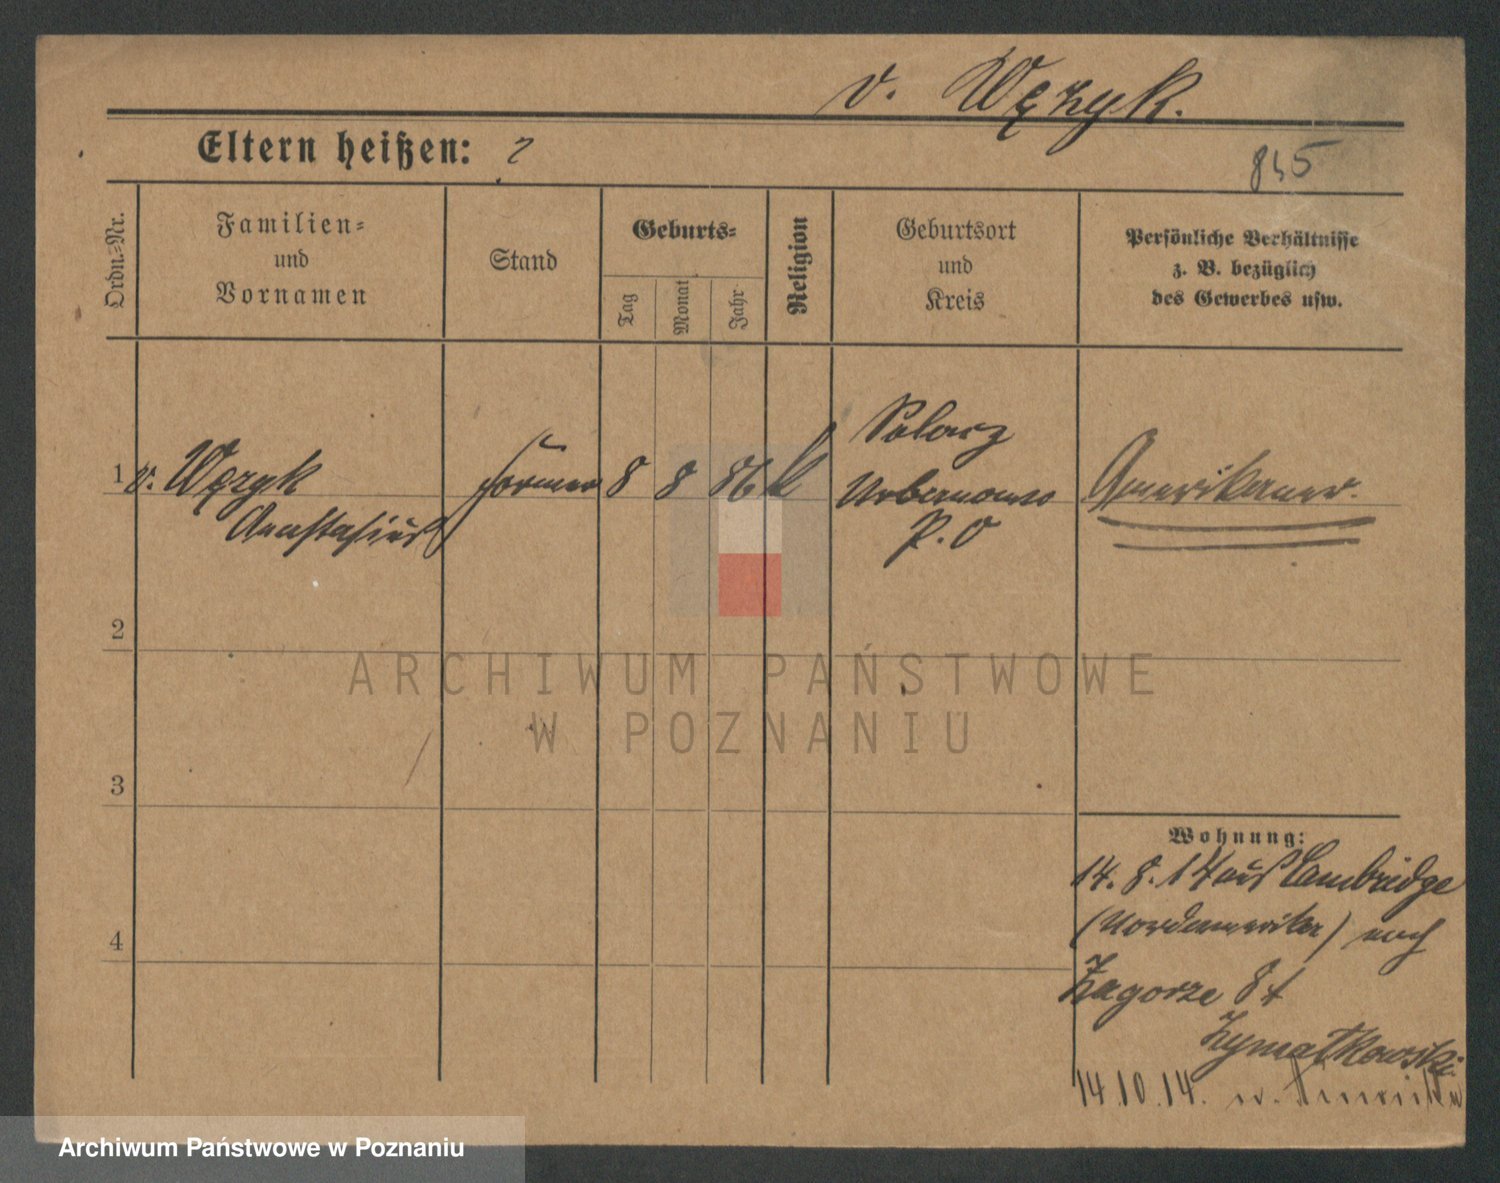 v. Wężyk.
Eltern heißen: ?
845
Ordn.=Nr.
Familien=
und
Vornamen
Stand
Geburts=
Tag
Monat
Jahr
Religion
Geburtsort
und
Kreis
Persönliche Verhältnisse
z. B. bezüglich
des Gewerbes usw.
1 v. Wężyk
Anastasius
Former
8 8 86 k
Urbanowo
P. O
Amerikaner.
2
ARCHIWUM PAŃSTWOWE
W POZNANIU
3
4
Wohnung:
14. 8. 14 aus Cambridge
(Nordamerika) nach
Zagorze 8 t
Zymałkowski.
14 10. 14. n. Amerika
Archiwum Państwowe w Poznaniu